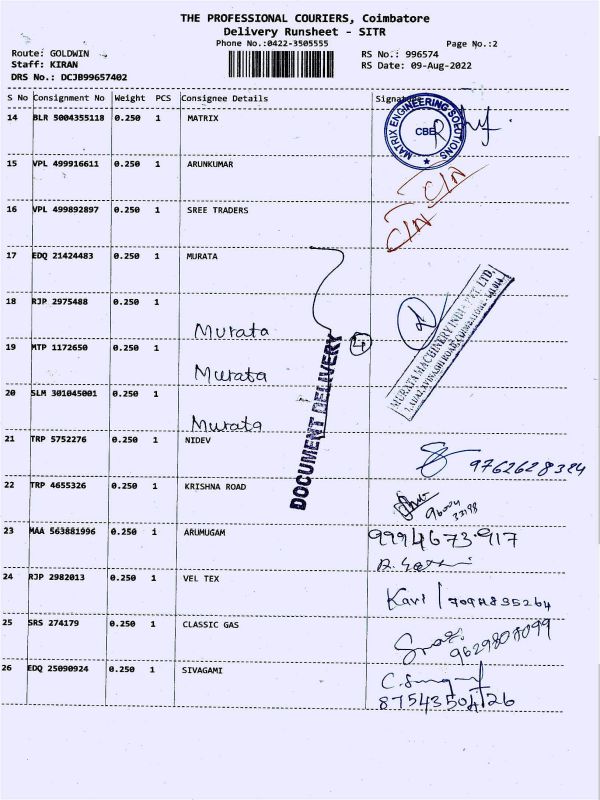 THE PROFESSIONAL COURIERS, Coimbatore
Delivery Runsheet - SITR
Phone No.:0422-3505555
Page No.:2
Route: GOLDWIN
RS No.: 996574
Staff: KIRAN
RS Date: 09-Aug-2022
DRS No.: DCJB99657402
S No Consignment No Weight PCS Consignee Details Signature
14 BLR 5004355118 0.250 1 MATRIX
MATRIX ENGINEERING SOLUTIONS
CBE
15 VPL 499916611 0.250 1 ARUNKUMAR
C/N
16 VPL 499892897 0.250 1 SREE TRADERS
C/N
17 EDQ 21424483 0.250 1 MURATA
18 RJP 2975488 0.250 1
Murata
MURATA MACHINERY INDIA PVT. LTD.
DOCUMENT DELIVERY
19 MTP 1172650 0.250 1
Murata
20 SLM 301045001 0.250 1
Murata
21 TRP 5752276 0.250 1 NIDEV
9762628324
22 TRP 4655326 0.250 1 KRISHNA ROAD
23 MAA 563881996 0.250 1 ARUMUGAM
9994673917
24 RJP 2982013 0.250 1 VEL TEX
Kavi / 7094835264
25 SRS 274179 0.250 1 CLASSIC GAS
9629807099
26 EDQ 25090924 0.250 1 SIVAGAMI
87543504126